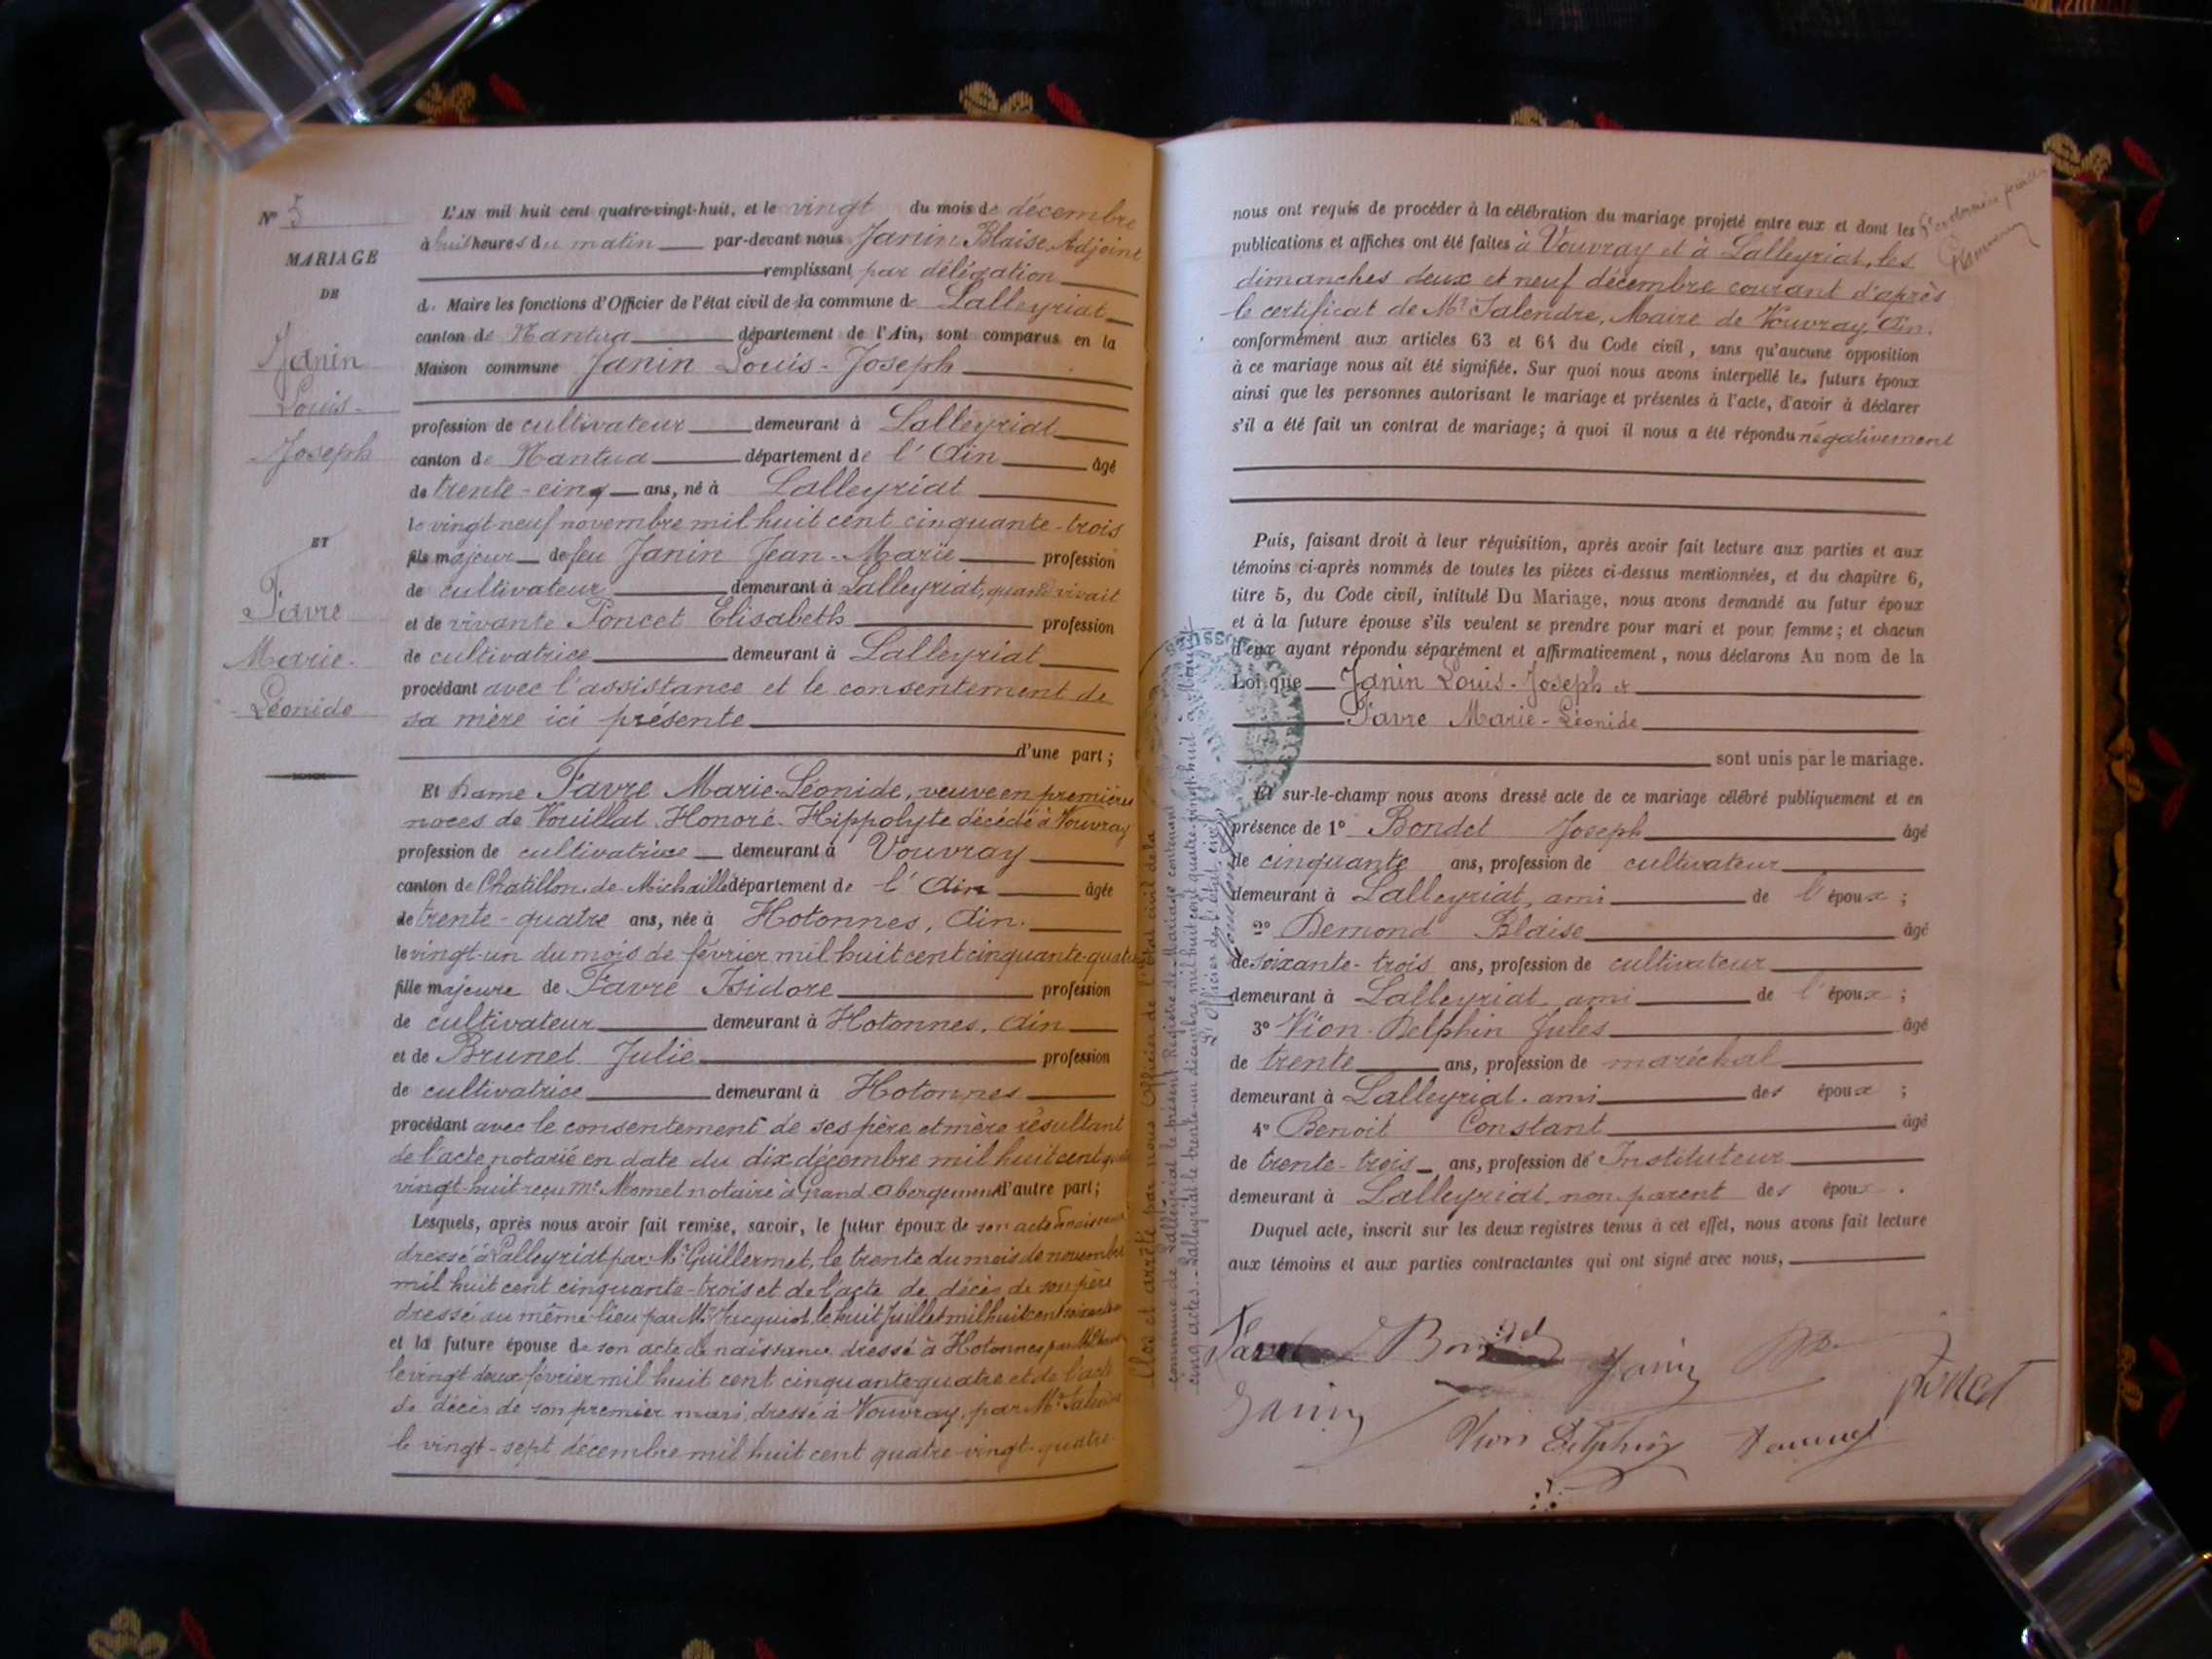 N° 5
MARIAGE
DE
Janin
Louis-
Joseph
ET
Favre
Marie-
Léonide
L'AN mil huit cent quatre-vingt-huit, et le vingt du mois de décembre
à huit heures du matin par-devant nous Janin Blaise Adjoint
remplissant par délégation
du Maire les fonctions d'Officier de l'état civil de la commune de Lalleyriat
canton de Nantua département de l'Ain, sont comparus en la
Maison commune Janin Louis-Joseph
profession de cultivateur demeurant à Lalleyriat
canton de Nantua département de l'Ain âgé
de trente-cinq ans, né à Lalleyriat
le vingt neuf novembre mil huit cent cinquante-trois
fils majeur de feu Janin Jean-Marie profession
de cultivateur demeurant à Lalleyriat, quand vivait
et de vivante Poncet Elisabeth profession
de cultivatrice demeurant à Lalleyriat
procédant avec l'assistance et le consentement de
sa mère ici présente
d'une part;
Et Dame Favre Marie-Léonide, veuve en premières
noces de Vouillat Honoré-Hippolyte décédé à Vouvray
profession de cultivatrice demeurant à Vouvray
canton de Chatillon-de-Michaille département de l'Ain âgée
de trente-quatre ans, née à Hotonnes, Ain.
le vingt-un du mois de février mil huit cent cinquante-quatre
fille majeure de Favre Isidore profession
de cultivateur demeurant à Hotonnes, Ain
et de Brunet Julie profession
de cultivatrice demeurant à Hotonnes
procédant avec le consentement de ses père et mère résultant
de l'acte notarié en date du dix décembre mil huit cent quatre
vingt-huit reçu Me Momet notaire à Grand abergement d'autre part;
Lesquels, après nous avoir fait remise, savoir, le futur époux de son acte de naissance
dressé à Lalleyriat par Mr Guillermet, le trente du mois de novembre
mil huit cent cinquante-trois et de l'acte de décès de son père
dressé au même lieu par Mr le huit Juillet mil huit cent
et la future épouse de son acte de naissance dressé à Hotonnes par Mr
le vingt deux février mil huit cent cinquante quatre et de l'acte
de décès de son premier mari, dressé à Vouvray, par Mr
le vingt-sept décembre mil huit cent quatre-vingt-quatre
Clos et arrêté par nous Officier de l'Etat civil de la
commune de Lalleyriat le présent Registre de Mariage contenant
cinq actes. Lalleyriat le trente-un décembre mil huit cent quatre-vingt-huit
L'Officier de l'état civil
nous ont requis de procéder à la célébration du mariage projeté entre eux et dont les
publications et affiches ont été faites à Vouvray et à Lalleyriat, les
dimanches deux et neuf décembre courant d'après
le certificat de Mr Salendre, Maire de Vouvray, Ain.
conformément aux articles 63 et 64 du Code civil, sans qu'aucune opposition
à ce mariage nous ait été signifiée. Sur quoi nous avons interpellé les futurs époux
ainsi que les personnes autorisant le mariage et présentes à l'acte, d'avoir à déclarer
s'il a été fait un contrat de mariage; à quoi il nous a été répondu négativement
Puis, faisant droit à leur réquisition, après avoir fait lecture aux parties et aux
témoins ci-après nommés de toutes les pièces ci-dessus mentionnées, et du chapitre 6,
titre 5, du Code civil, intitulé Du Mariage, nous avons demandé au futur époux
et à la future épouse s'ils veulent se prendre pour mari et pour femme; et chacun
d'eux ayant répondu séparément et affirmativement, nous déclarons Au nom de la
Loi que Janin Louis-Joseph et
Favre Marie-Léonide
sont unis par le mariage.
Et sur-le-champ nous avons dressé acte de ce mariage célébré publiquement et en
présence de 1° Bondet Joseph âgé
de cinquante ans, profession de cultivateur
demeurant à Lalleyriat, ami de l'époux;
2° Demond Blaise âgé
de soixante-trois ans, profession de cultivateur
demeurant à Lalleyriat ami de l'époux;
3° Vion-Delphin Jules âgé
de trente ans, profession de maréchal
demeurant à Lalleyriat. ami des époux;
4° Benoit Constant âgé
de trente-trois ans, profession de Instituteur
demeurant à Lalleyriat non parent des époux.
Duquel acte, inscrit sur les deux registres tenus à cet effet, nous avons fait lecture
aux témoins et aux parties contractantes qui ont signé avec nous,
Janin
Poncet
Janin
Vion Delphin